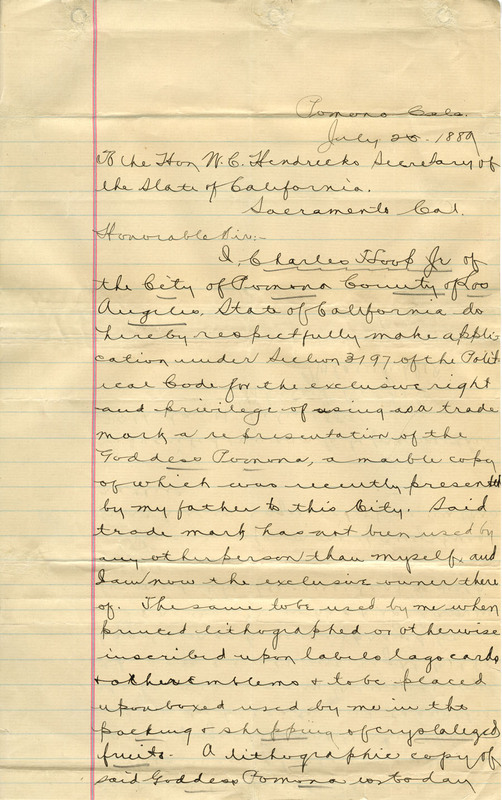 Pomona Cala.
July 25. 1889
To the Hon W. C. Hendricks Secretary of
the State of California.
Sacramento Cal.
Honorable Sir:-
I Charles Loop Jr of
the City of Pomona County of Los
Angeles, State of California do
hereby respectfully make appli-
cation under Section 3197 of the Polit
ical Code for the exclusive right
and privilege of using as a trade
mark a representation of the
Goddess Pomona, a marble copy
of which was recently presented
by my father to this City. Said
trade mark has not been used by
any other person than myself, and
I am now the exclusive owner there
of. The same to be used by me when
printed lithographed or otherwise
inscribed upon labels tags cards
& other emblems & to be placed
upon boxed used by me in the
packing & shipping of crystalized
fruits. A lithographic copy of
said Goddess Pomona is today